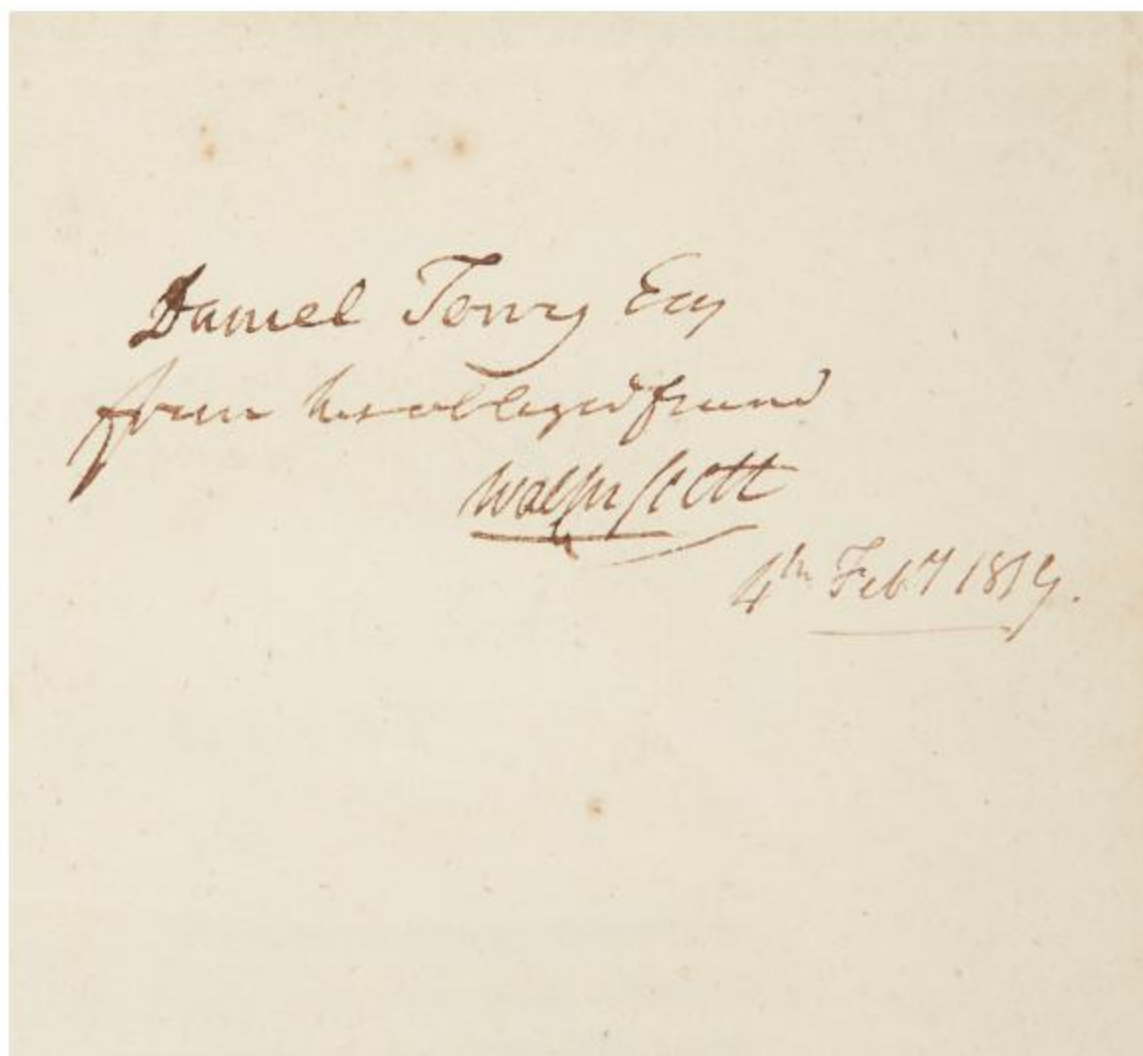 Daniel Terry Esq
from his obliged friend
Walter Scott
4th Feby 1819.